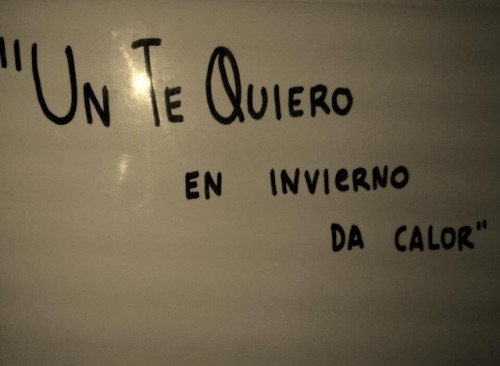 "UN TE QUIERO
EN INVIeRNO
DA CALOR"